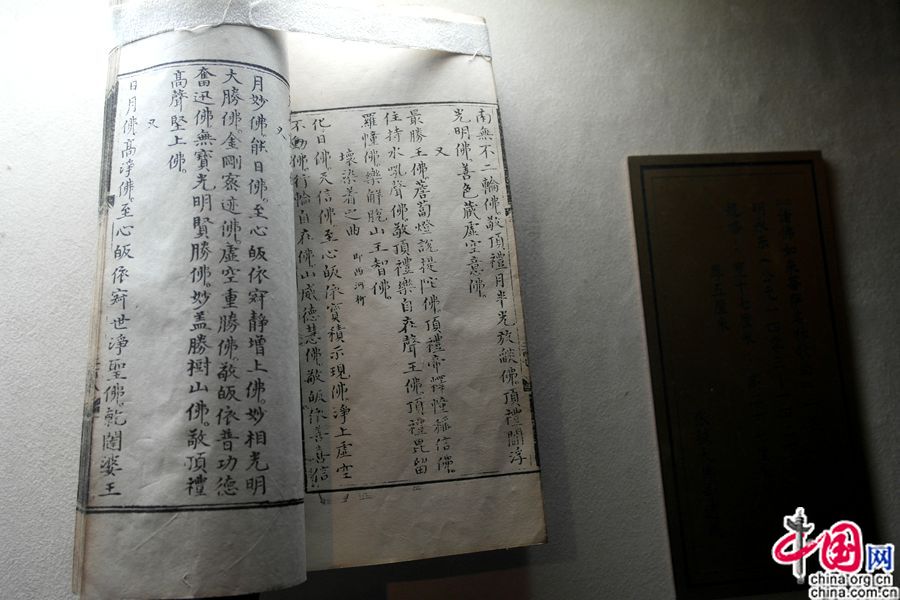 南無不二輪佛。敬頂禮月半光放燄佛。頂禮閻浮
光明佛。善色藏虛空意佛。
又
最勝王佛。薝蔔燈說提陀佛。頂禮帝釋幢稱信佛。
住持水吼聲佛。敬頂禮樂自在聲王佛。頂禮毘留
羅幢佛。樂解脫山王智佛。
壞染著之曲 即西河柳
化日佛。天信佛。至心皈依寶積示現佛。淨上虛空
不動佛。行輪自在佛。山威德慧佛。敬皈依善喜信
月妙佛。能日佛。至心皈依寂靜增上佛。妙相光明
大勝佛。金剛密迹佛。虛空重勝佛。敬皈依普功德
奮迅佛。無寶光明賢勝佛。妙盖勝樹山佛。敬頂禮
高聲堅上佛。
又
日月佛。高淨佛。至心皈依寂世淨聖佛。乾闥婆王
諸佛如來菩薩
中国网
china.org.cn
china.com.cn